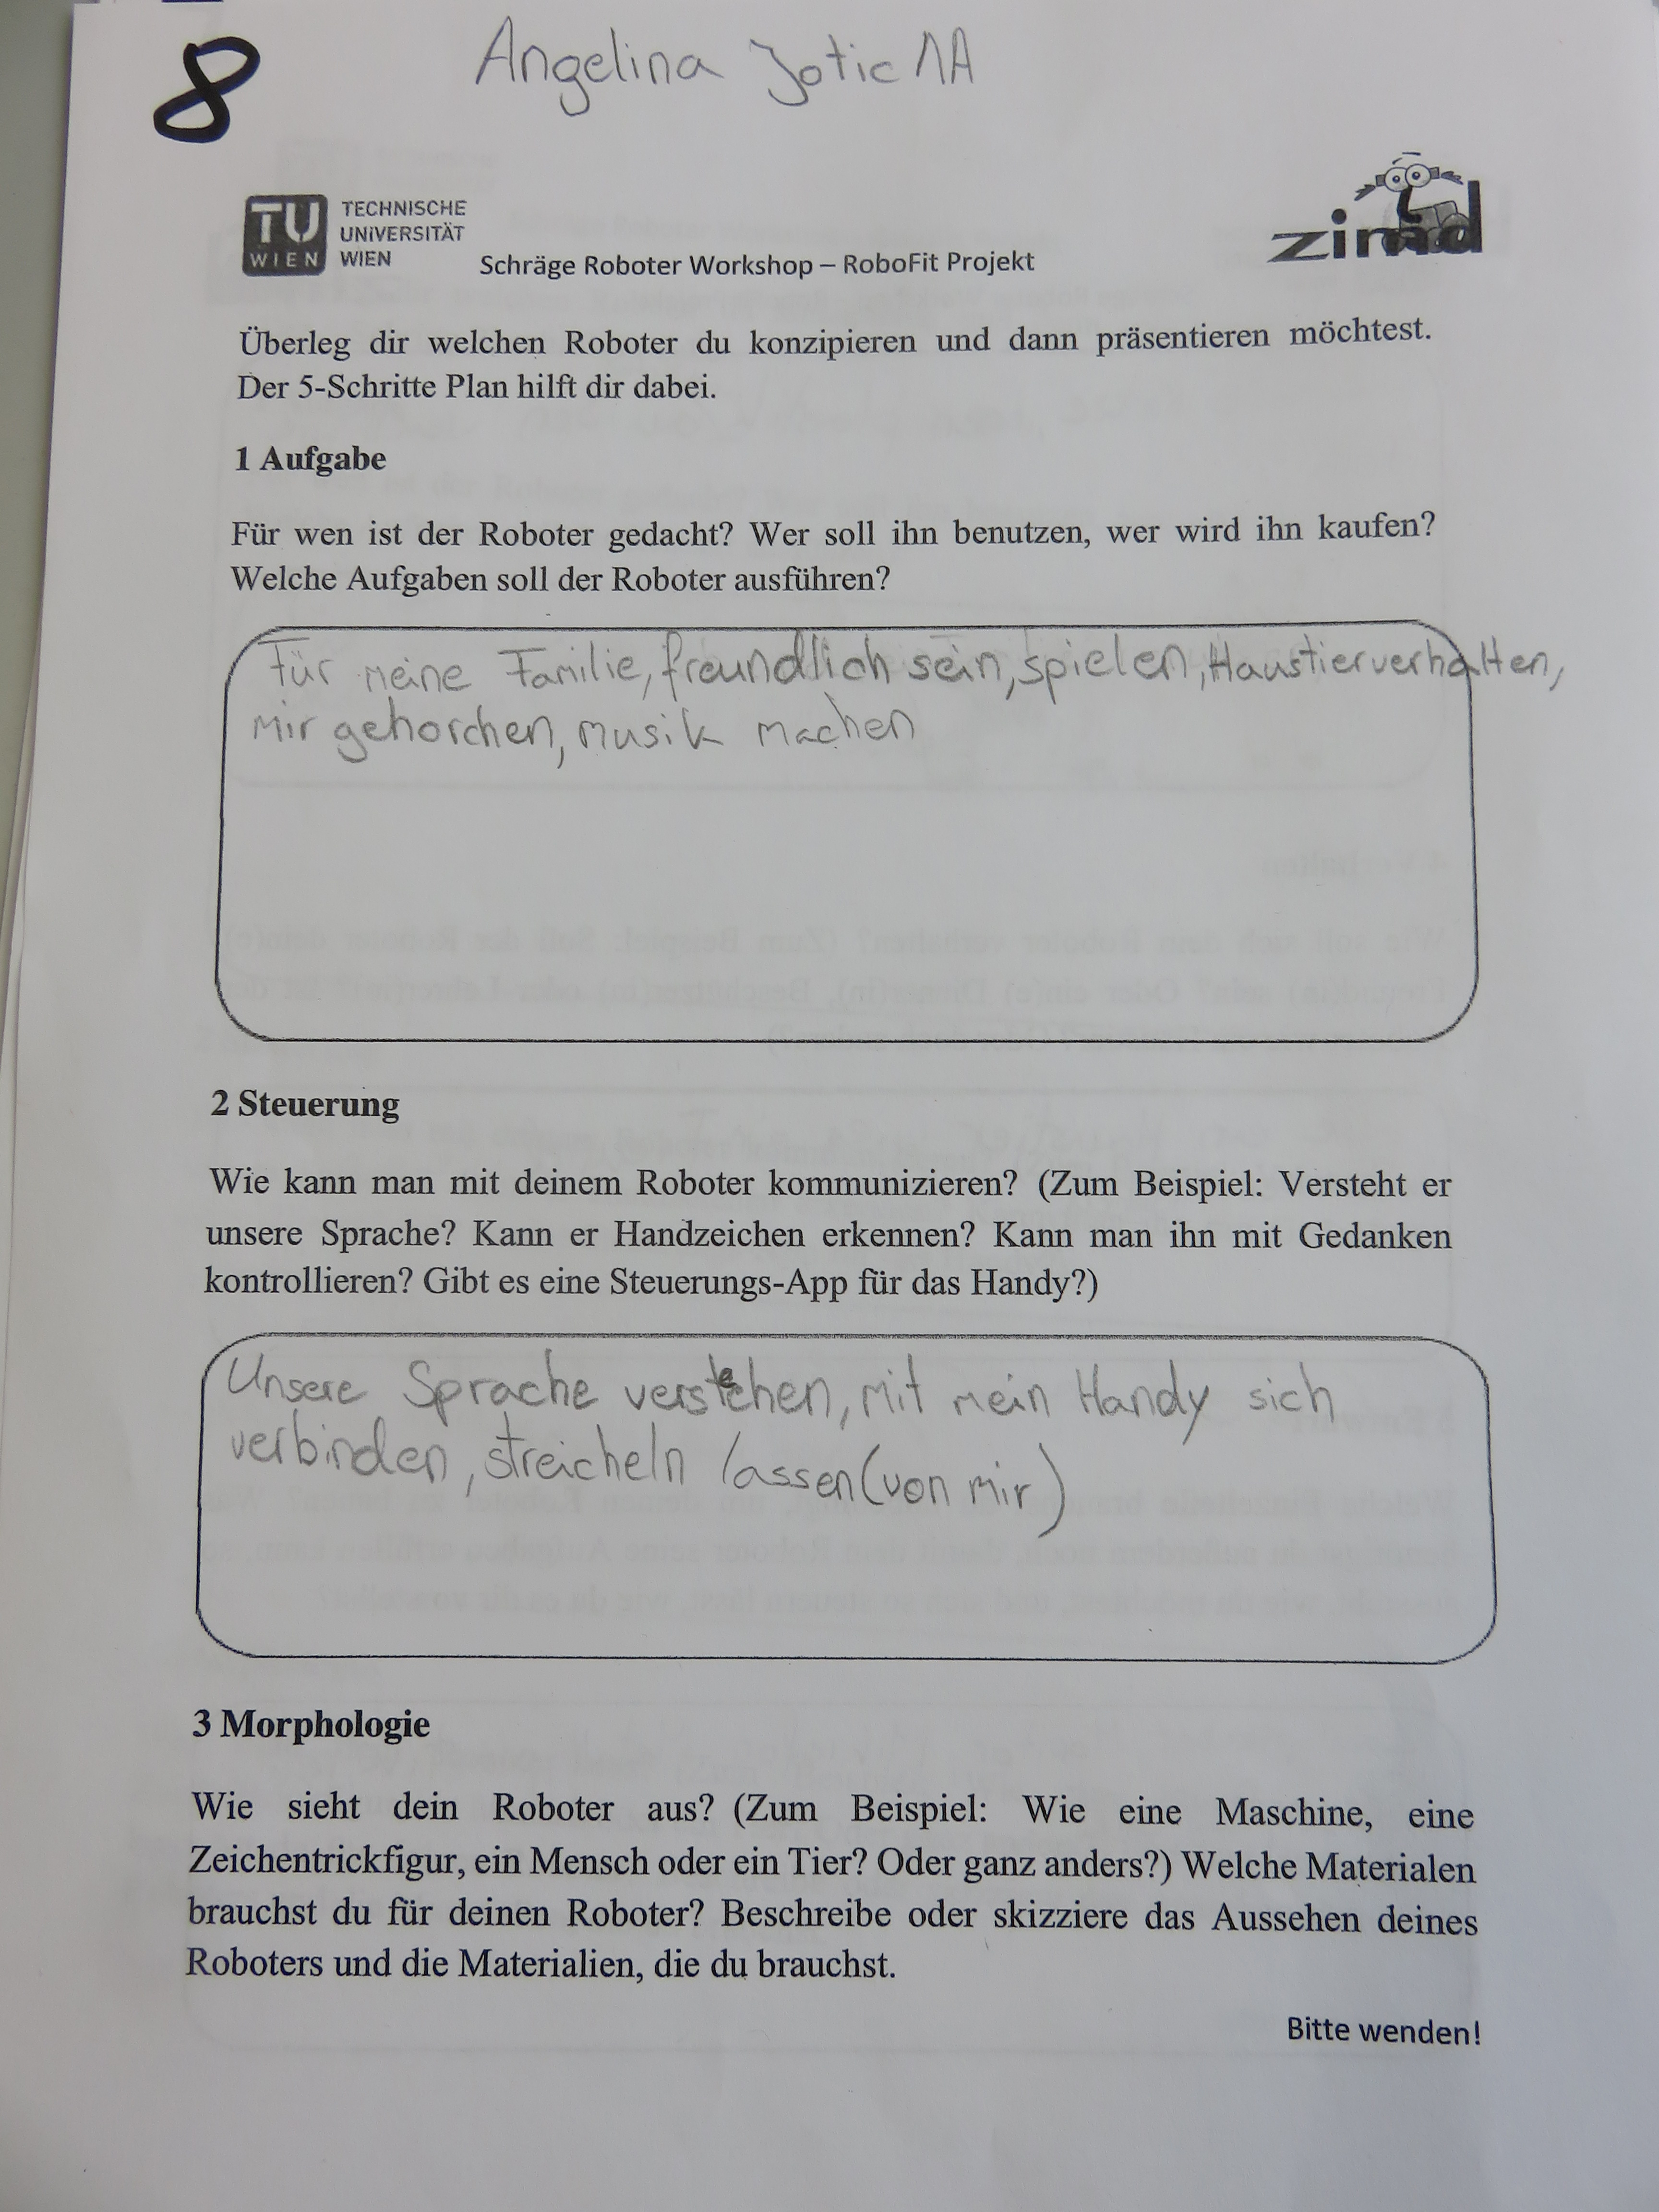 8
Angelina Jotic 1A
TU WIEN
TECHNISCHE
UNIVERSITÄT
WIEN
Schräge Roboter Workshop – RoboFit Projekt
zimd
Überleg dir welchen Roboter du konzipieren und dann präsentieren möchtest.
Der 5-Schritte Plan hilft dir dabei.
1 Aufgabe
Für wen ist der Roboter gedacht? Wer soll ihn benutzen, wer wird ihn kaufen?
Welche Aufgaben soll der Roboter ausführen?
Für meine Familie, freundlich sein, spielen, Haustierverhalten,
mir gehorchen, musik machen
2 Steuerung
Wie kann man mit deinem Roboter kommunizieren? (Zum Beispiel: Versteht er
unsere Sprache? Kann er Handzeichen erkennen? Kann man ihn mit Gedanken
kontrollieren? Gibt es eine Steuerungs-App für das Handy?)
Unsere Sprache verstehen, mit mein Handy sich
verbinden, streicheln lassen (von mir)
3 Morphologie
Wie sieht dein Roboter aus? (Zum Beispiel: Wie eine Maschine, eine
Zeichentrickfigur, ein Mensch oder ein Tier? Oder ganz anders?) Welche Materialen
brauchst du für deinen Roboter? Beschreibe oder skizziere das Aussehen deines
Roboters und die Materialien, die du brauchst.
Bitte wenden!